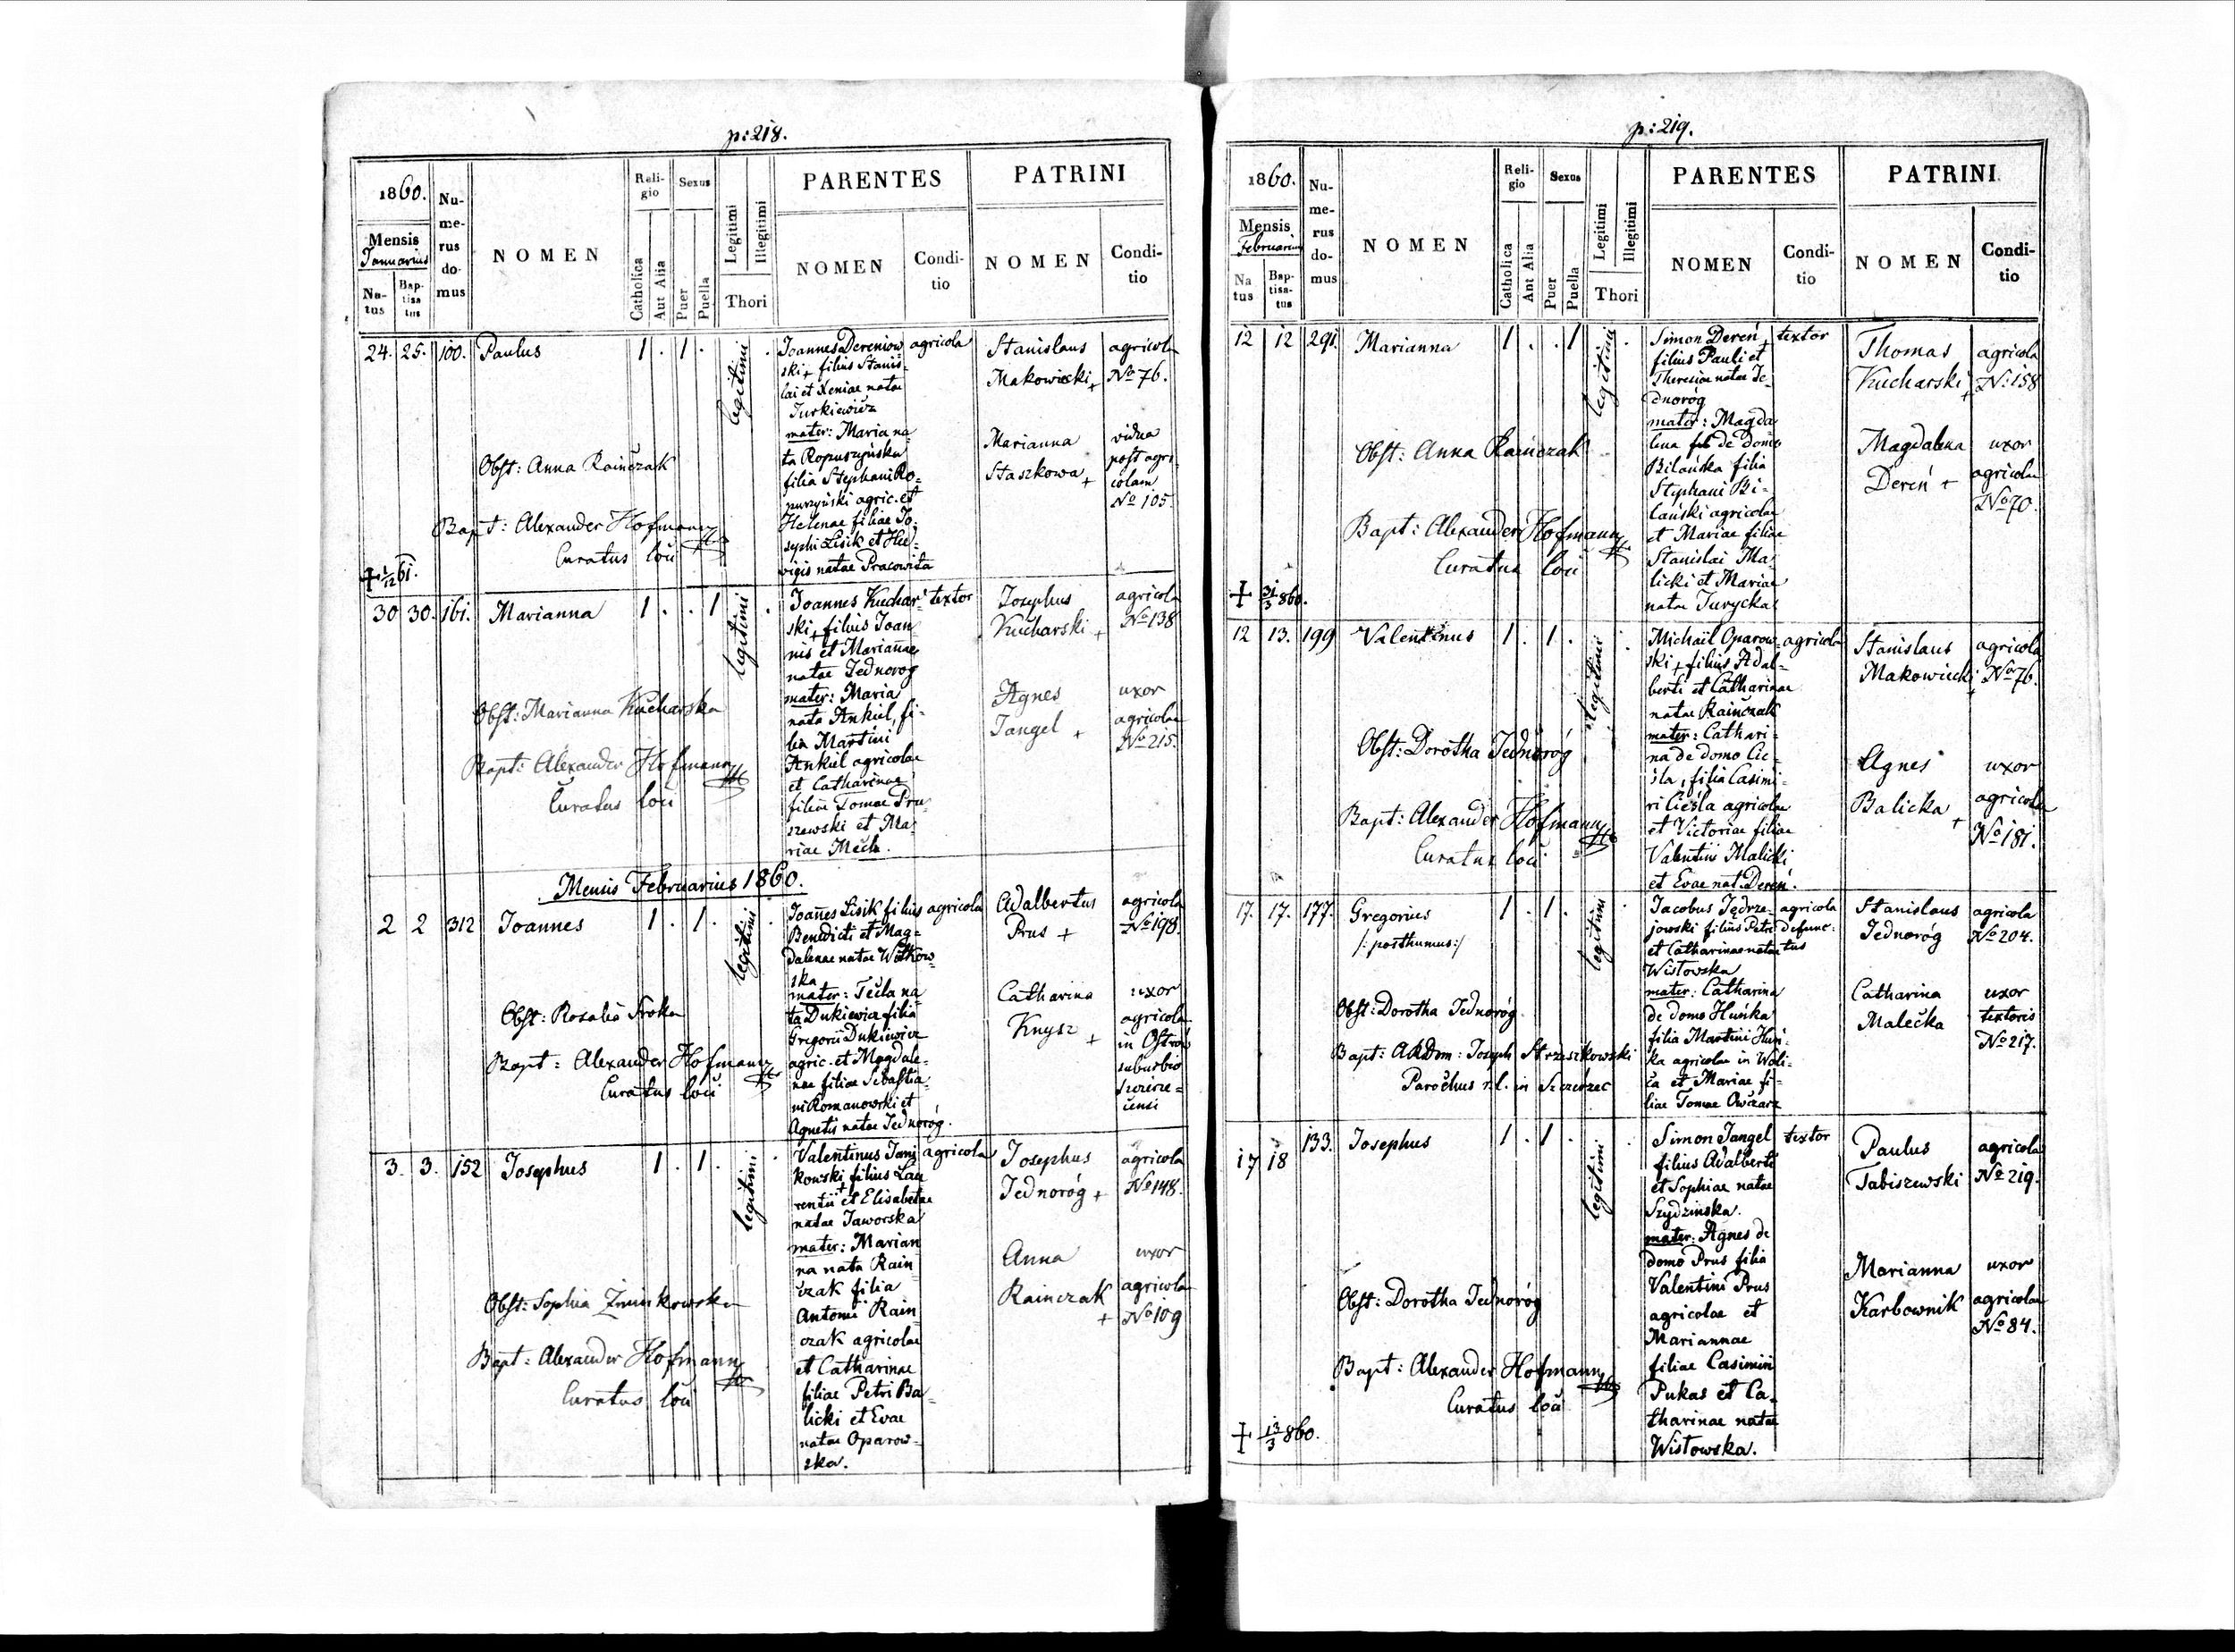 p: 218.
1860.
Mensis
Januarius
Na-
tus
Bap-
tisa
tus
Nu-
me-
rus
do-
mus
NOMEN
Reli-
gio
Catholica
Aut Alia
Sexus
Puer
Puella
Legitimi
Illegitimi
Thori
PARENTES
NOMEN
Condi-
tio
PATRINI
NOMEN
Condi-
tio
24. 25. 100. Paulus 1 . 1 .
legitimi
Obst: Anna Rainczak
Bapt: Alexander Hofmann
Curatus loci
Joannes Dereniow
ski + filius Stanis-
lai et Xeniae natae
Jurkiewicz
mater: Maria na
ta Ropuszyńska
filia Stephani Ro-
puszyński agric. et
Helenae filiae Jo-
sephi Lisik et Hed-
vigis natae Pracowita
agricola
Stanislaus
Makowiecki +
agricola
No 76.
Marianna
Staszkowa +
vidua
post agri
colam
No 105.
+ 1/12 61.
30 30. 161. Marianna 1 . . 1
legitimi
Obst: Marianna Kucharska
Bapt: Alexander Hofmann
Curatus loci
Joannes Kuchar
ski + filius Joan
nis et Mariannae
natae Jednorog
mater: Maria
nata Ankiel, fi-
lia Martini
Ankiel agricolae
et Catharinae
filiae Tomae Pru
szewski et Ma
riae Mech.
textor
Josephus
Kucharski +
agricola
No 138
Agnes
Jangel +
uxor
agricolae
No 215.
Mensis Februarius 1860.
2 2 312 Joannes 1 . 1 .
legitimi
Obst: Rosalia Sroka
Bapt: Alexander Hofmann
Curatus loci
Joannes Lisik filius
Benedicti et Mag-
dalenae natae Witkow-
ska
mater: Tecla na
ta Dukiewicz filia
Gregorii Dukiewicz
agric. et Magdale-
nae filiae Sebastia-
ni Romanowski et
Agnetis natae Jednoróg.
agricola
Adalbertus
Prus +
agricola
No 198.
Catharina
Knysz +
uxor
agricolae
in Ostrów
suburbio
Szczirze-
censi
3. 3. 152 Josephus 1 . 1 .
legitimi
Obst: Sophia
Bapt: Alexander Hofmann
Curatus loci
Valentinus Jani
kowski filius Lau
rentii + et Elisabetae
natae Jaworska
mater: Marian
na nata Rain
czak filia
Antonii Rain
czak agricolae
et Catharinae
filiae Petri Ba-
licki et Evae
natae Oparow-
ska.
agricola
Josephus
Jednoróg +
agricola
No 148.
Anna
Rainczak +
uxor
agricolae
No 109
p: 219.
1860.
Mensis
Februarius
Na
tus
Bap-
tisa-
tus
Nu-
me-
rus
do-
mus
NOMEN
Reli-
gio
Catholica
Aut Alia
Sexus
Puer
Puella
Legitimi
Illegitimi
Thori
PARENTES
NOMEN
Condi-
tio
PATRINI.
NOMEN
Condi-
tio
12 12 291. Marianna 1 . . 1
legitimi
Obst: Anna Rainczak
Bapt: Alexander Hofmann
Curatus loci
Simon Dereń +
filius Pauli et
Theresiae natae Je-
dnoróg
mater: Magda
lena de domo
Bilańska filia
Stephani Bi-
lański agricolae
et Mariae filiae
Stanislai Ma-
licki et Mariae
natae Jurycka
textor
Thomas
Kucharski +
agricola
No: 158
Magdalena
Dereń +
uxor
agricolae
No 70.
+ 31/3 860.
12 13. 199 Valentinus 1 . 1 .
legitimi
Obst: Dorotha Jednoróg
Bapt: Alexander Hofmann
Curatus loci
Michaël Oparow
ski + filius Adal-
berti et Catharinae
natae Rainczak
mater: Cathari-
na de domo Cie-
śla, filia Casimi-
ri Cieśla agricolae
et Victoriae filiae
Valentini Malicki
et Evae nat. Dereń.
agricola
Stanislaus
Makowiecki +
agricola
No 76.
Agnes
Balicka +
uxor
agricolae
No 181.
17. 17. 177. Gregorius 1 . 1 .
/: posthumus :/
legitimi
Obst: Dorotha Jednoróg
Bapt: ARDom: Joseph Strzeszkowski
Parochus r. l. in Szczérzec
Jacobus Jędrze-
jowski filius Petri
et Catharinae natae
Wistowska
mater: Catharina
de domo Huńka
filia Martini Huń-
ka agricolae in Woli-
ca et Mariae fi-
liae Tomae Owczarz
agricola
defunc-
tus
Stanislaus
Jednoróg
agricola
No 204.
Catharina
Malecka
uxor
textoris
No 217.
17 18 133. Josephus 1 . 1 .
legitimi
Obst: Dorotha Jednoróg
Bapt: Alexander Hofmann
Curatus loci
Simon Jangel
filius Adalberti
et Sophiae natae
Szydzinska.
mater: Agnes de
domo Prus filia
Valentini Prus
agricolae et
Mariannae
filiae Casimiri
Pukas et Ca-
tharinae natae
Wistowska.
textor
Paulus
Tabiszewski
agricola
No 219.
Marianna
Karbownik
uxor
agricolae
No 84.
+ 13/3 860.